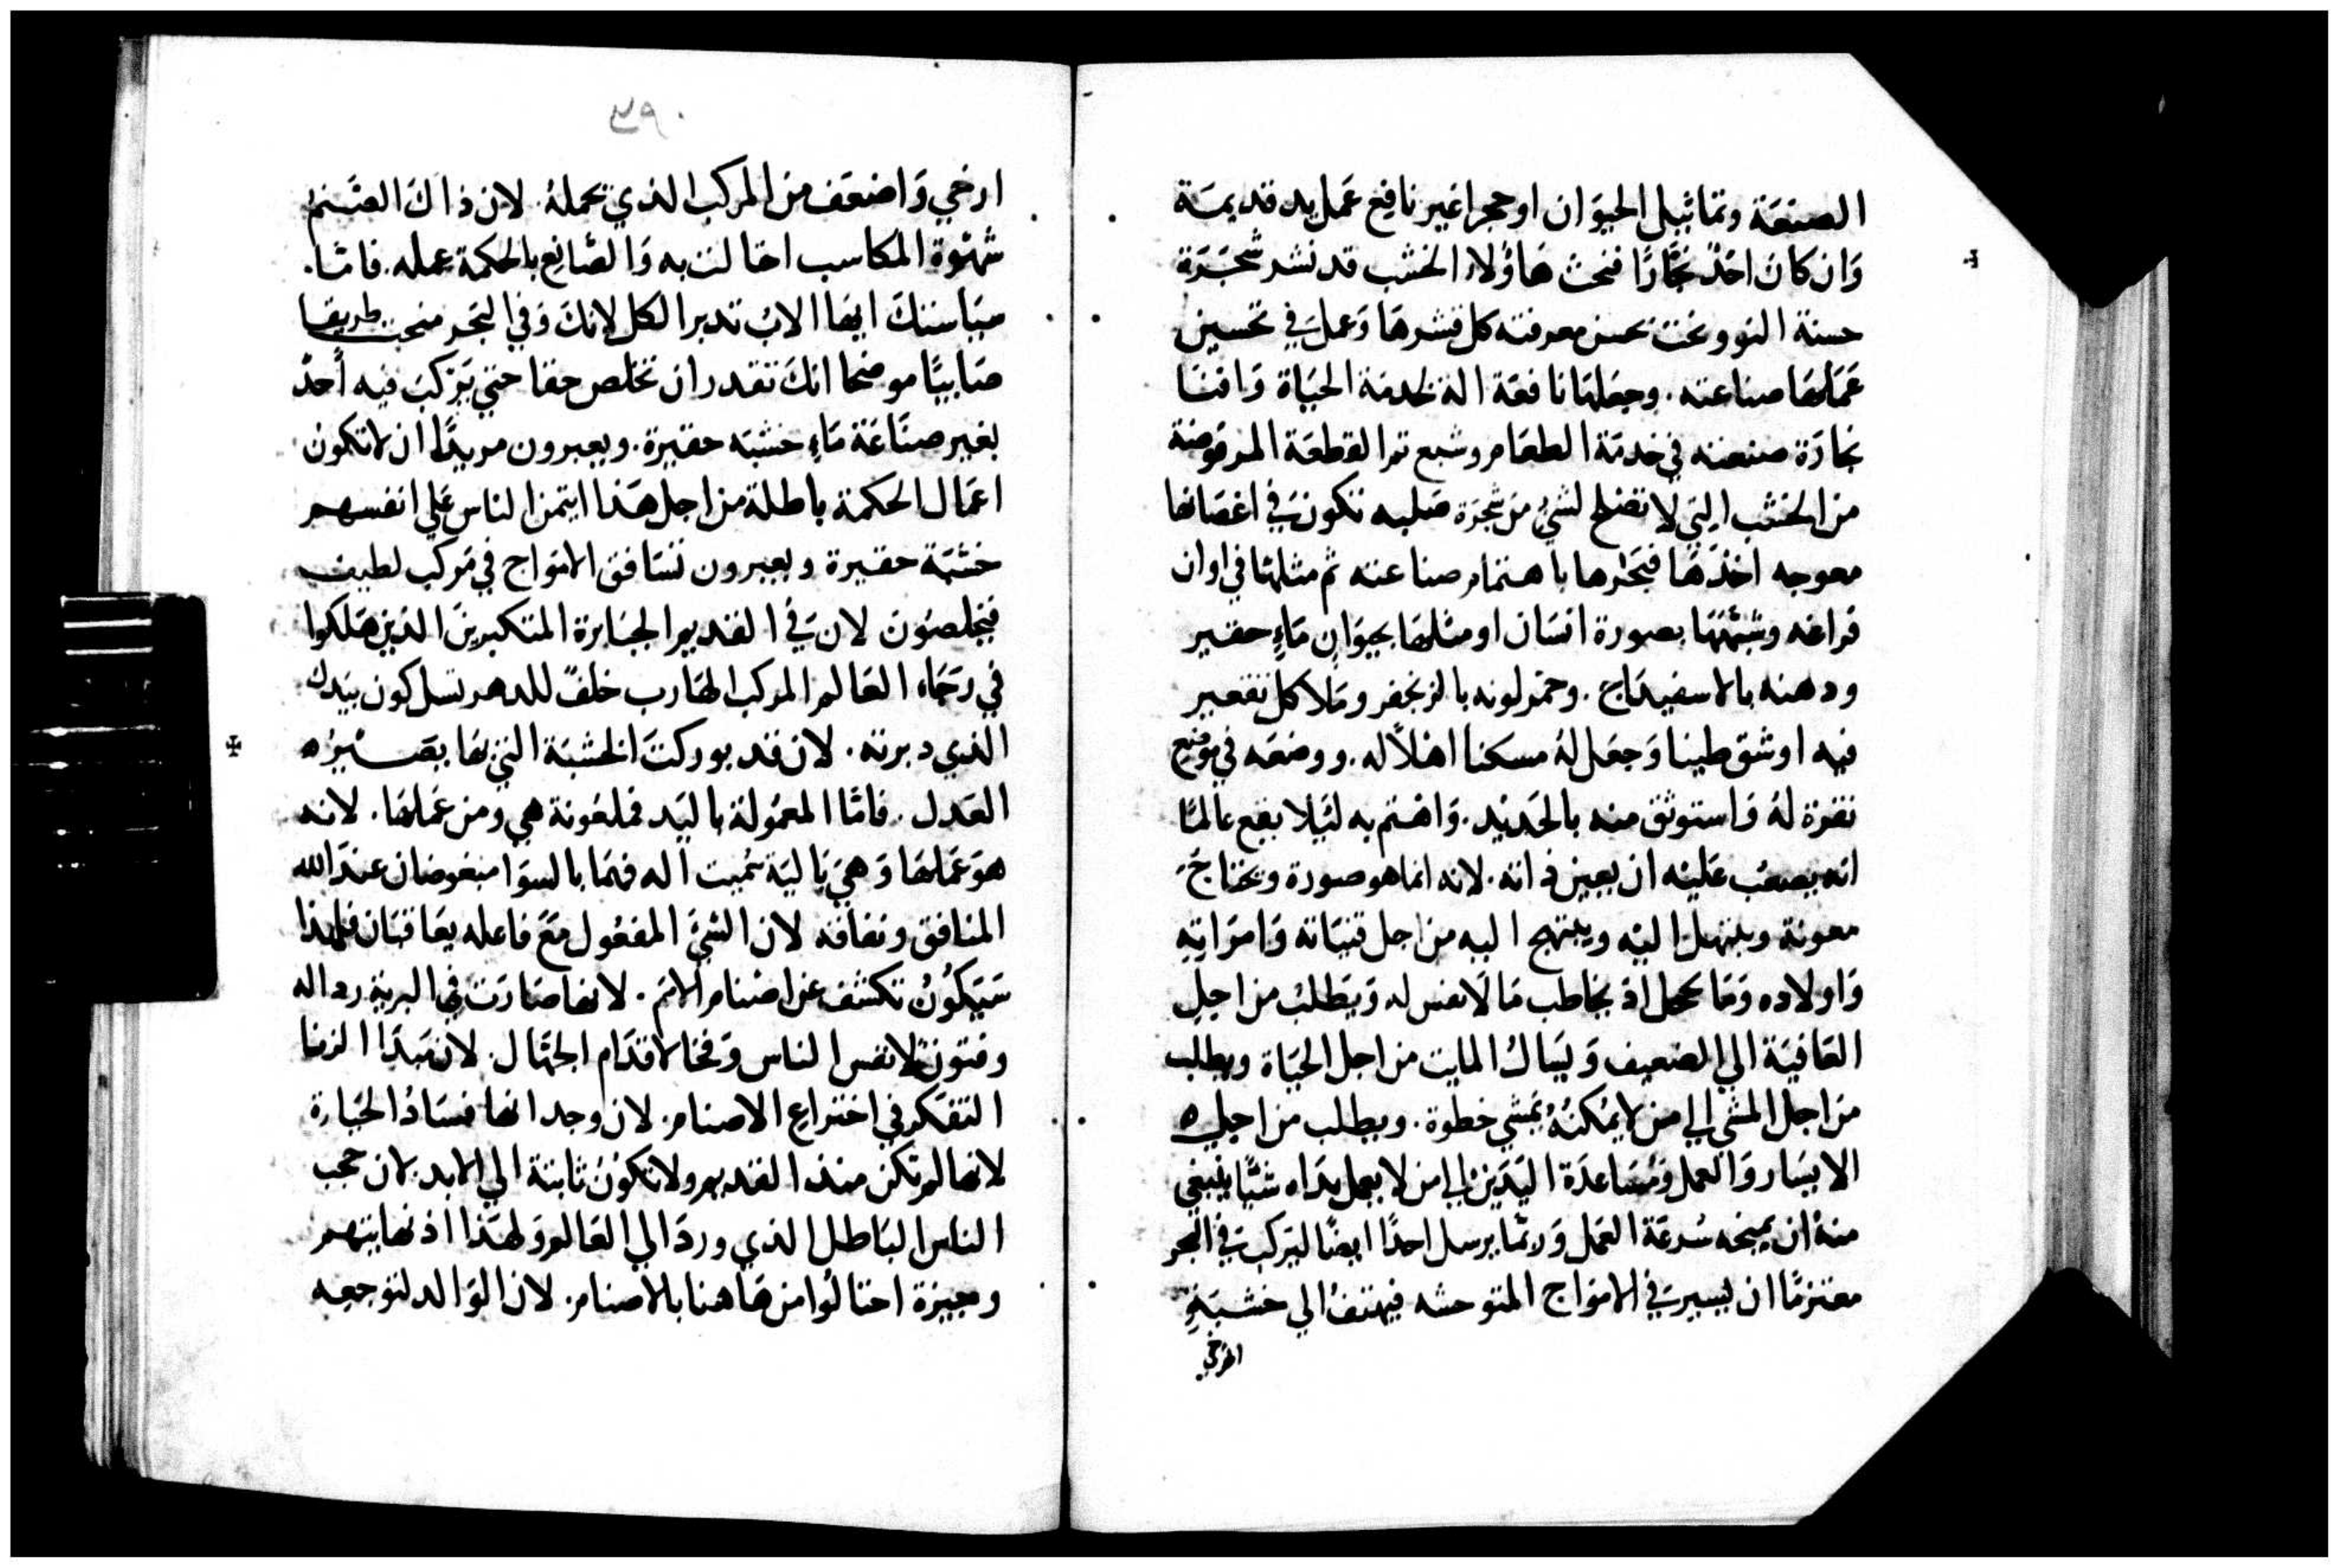 الصنعَة وتماثيل الحيوَان او حجرا غير نافع عَمل يد قديمَة
وَان كانَ احدٌ نجَّارًا فنحت هَاؤلاء الخشب قد نشر شجَرَة
حسنة النمو ونحت بحسن معرفته كل قشرهَا وَعمل في تحسين
عَمَلهَا صناعته. وجعلهَا نافعَة الة لخدمَة الحيَاة وَافنَا
نجارَة صنعته في خدمَة الطعَام وشبع ثم القطعَة المرفوضة
من الخشب التي لا تصلح لشيْ من شجرَة صَلبه تكون في اغصَانها
معوجه اخذهَا فنجَرها باهتمام صناعته ثم مثلهَا في اوان
فراغه وشبّهَهَا بصورة انسَان او مثلهَا بحيوَان مَاءٍ حقير
ودهنه بالاسفيدَاج. وحمر لونه بالزنجفر ومَلا كل تقعير
فيه او شق طينا وَجعَل لهُ مسكنا اهلاً له. ووضعَه في موضع
نقرة لهُ وَاستوثق منه بالحَديد. وَاهتم به ليَلا يقع عالمًا
انه يصعُب عَليْه ان يعين ذاته. لانه انما هو صورة ويحتاجَ
معونة ويبتهل اليْه ويبتهج اليه من اجل قنيَاته وَامرَاته
وَاولاده وَمَا يخجل اذ يخاطب مَا لَا نفس له وَيَطلبُ من اجلِ
العَافيَة الي الضعيف وَيَسَالُ المايت من اجل الحيَاة ويطلب
من اجل المشي الي من لا يمكنهُ يمشي خطوة. ويطلب من اجله
الايسَار وَالعمل ومُسَاعدَة اليَدَين الي من لا يعمل يدَاه شيًا ينبغي
منهُ ان يمنحه سُرعَة العَمل وَربمَا يرسل احدًا ايضًا ليَركبَ في البحر
معتزمًا ان يسيرَ في الامْوَاج المتوحشه فيهتفُ الي خشبَةٍ
ارخي
٣٩٠
ارخي وَاضعَف من المركب الذي تحملهُ. لان ذاكَ الصَنم
شهْوَة المكاسب احتالت به وَالصَّانع بالحكمة عمله. فامّا.
سيَاستكَ ايهَا الابُ تدبر الكل لانكَ وَفي البَحر منحت طريقا
صَابيًا موضحا انكَ تقدر ان تخلص حقا حتي يَركبَ فيه أحدٌ
بغير صنَاعَة مَاءِ خشبَه حقيرة. ويعبرون مريدًا ان لا تكون
اعمَال الحكمَة باطلة من اجل هَذا ايتمن الناس عَلي انفسهم
خشبَة حقيرة ويعبرون تسَافق الامْوَاج في مَركب لطيف
فيخلصُونَ لان في القديم الجبَابرة المتكبرينَ الذين هَلكوا
في رَجَاء العَالم المركب الهَارب خلفٌ للدهر نسل كون بيَدك
الذي دبرته. لان قد بوركتَ الخشبَة التي بهَا بصَــيْرُه
العَدل. فامّا المعمُولة باليَد فملعُونة هي ومن عَملهَا. لانه
هوَ عَملهَا وَهيَ بَاليَة سُميت اله فهمَا بالسوَا مبغوضان عندَ الله
المنافق ونفاقه لان الشيْ المفعُول مَعَ فاعله يعَاقبَان فلهذا
سَيَكوُنُ تكشف عن اصْنام الامَم. لانها صَارَت في البرية رد اله
وفتون لانفس الناس وَفخا لاقدَام الجهّال. لان مَبدَا الزنا
التفكر في اختراع الاصنام. لان وجد انها فسَادُ الحيَاة
لانها لم تكن منذ القديم ولا تكونُ ثابتة الي الابد لان عجب
الناس البَاطل الذي ورد الي العَالم وَلهَذا اذ نهايتهم
وجيزة احتالُوا من هَاهنا بالاصنام. لان الوَالد لتوجعه